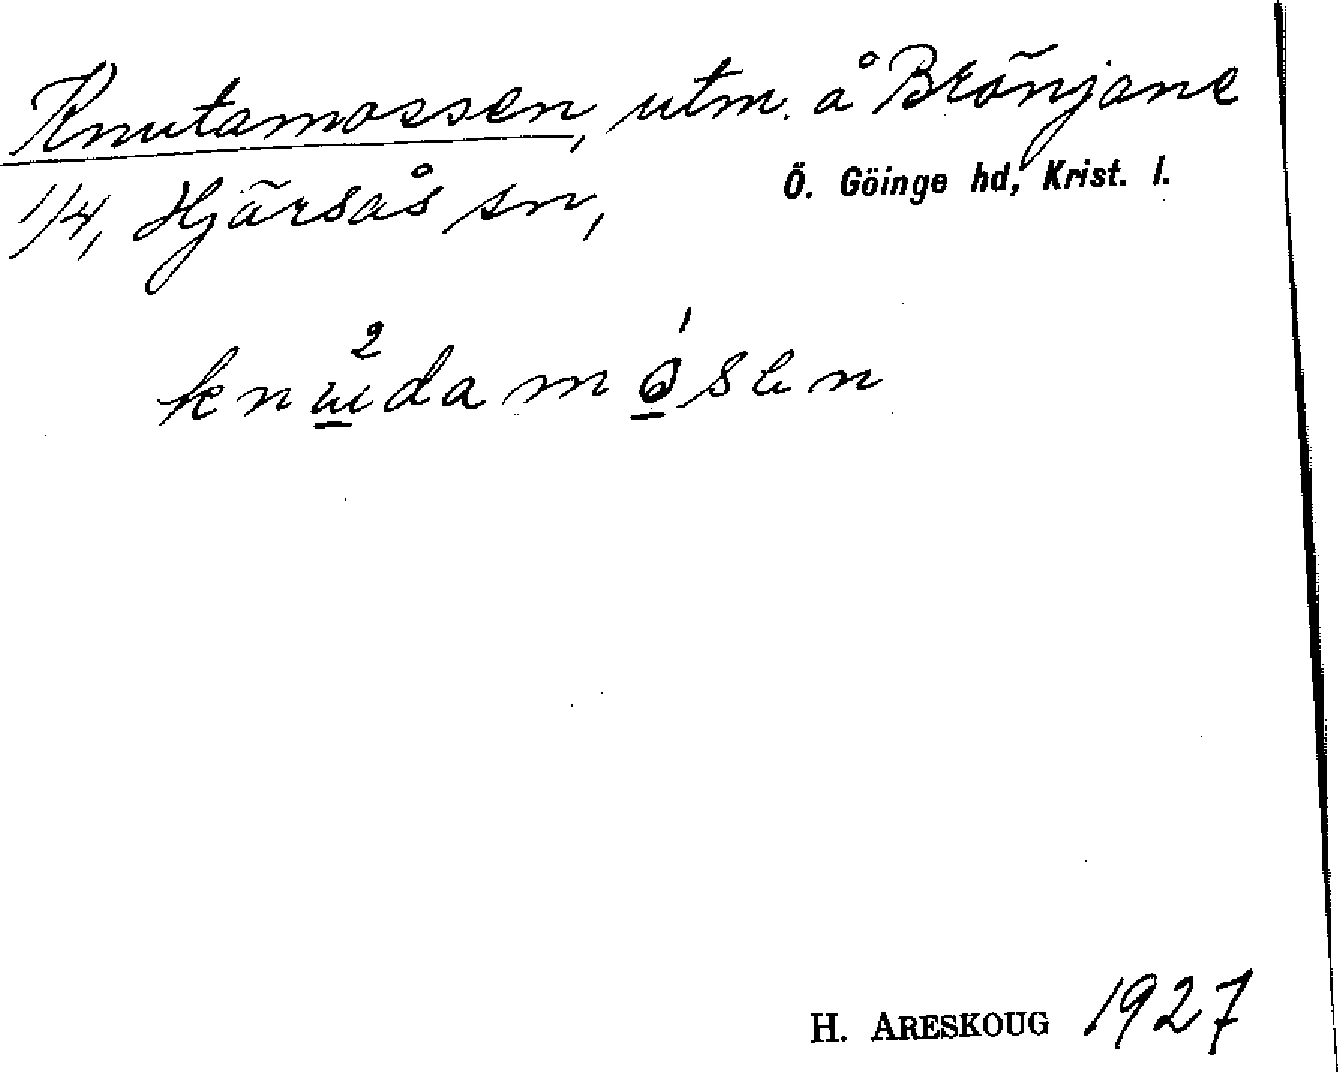 Knutamossen, utm. å Brönjane
1/4, Hjärsås sn, Ö. Göinge hd, Krist. l.
H. ARESKOUG 1927